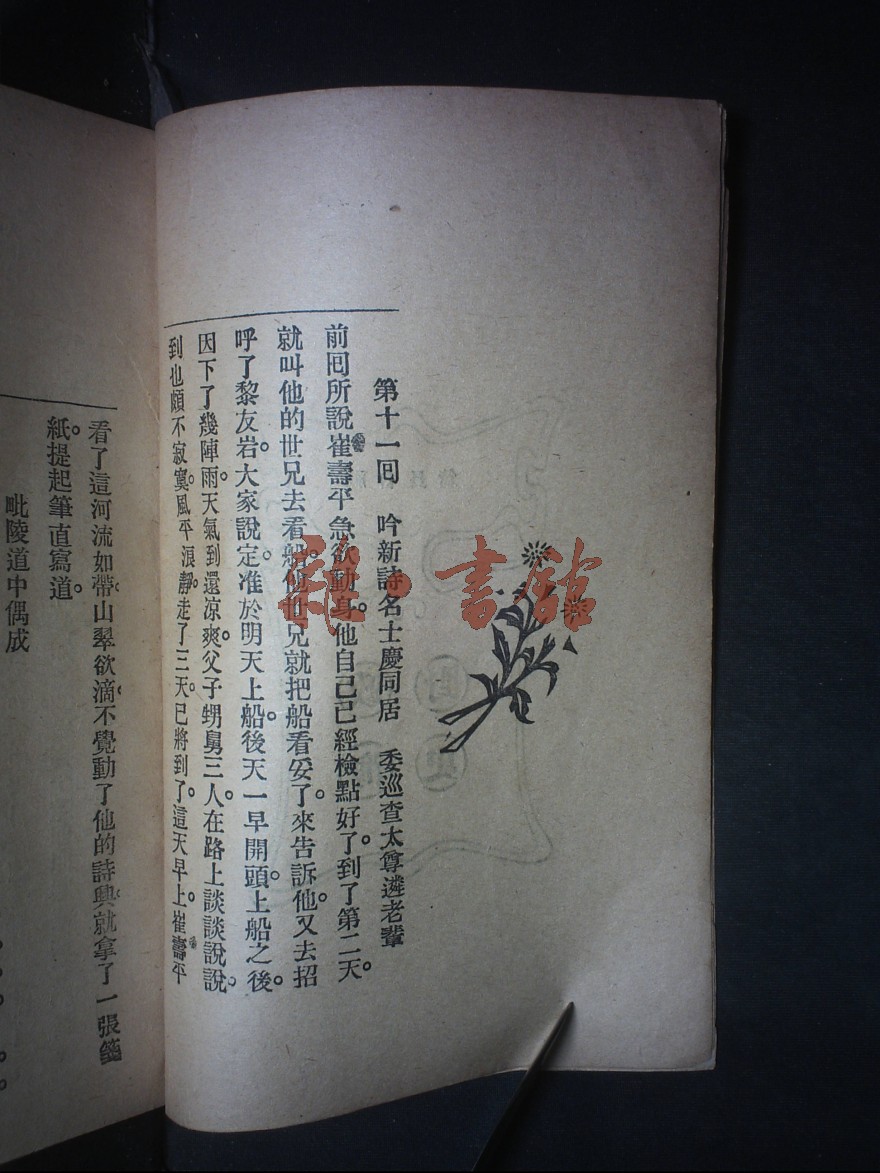 第十一回　吟新詩名士慶同居　委巡查太尊遴老輩
前回所說崔壽平急欲動身。他自己已經檢點好了。到了第二天。
就叫他的世兄去看船。他世兄就把船看妥了。來告訴他。又去招
呼了黎友岩。大家說定。准於明天上船。後天一早開頭。上船之後。
因下了幾陣雨。天氣到還凉爽。父子甥舅三人。在路上談談說說。
到也頗不寂寞。風平浪靜。走了三天。已將到了。這天早上。崔壽平
看了這河流如帶。山翠欲滴。不覺動了他的詩興。就拿了一張箋
紙。提起筆直寫道。
毗陵道中偶成
雜·書館